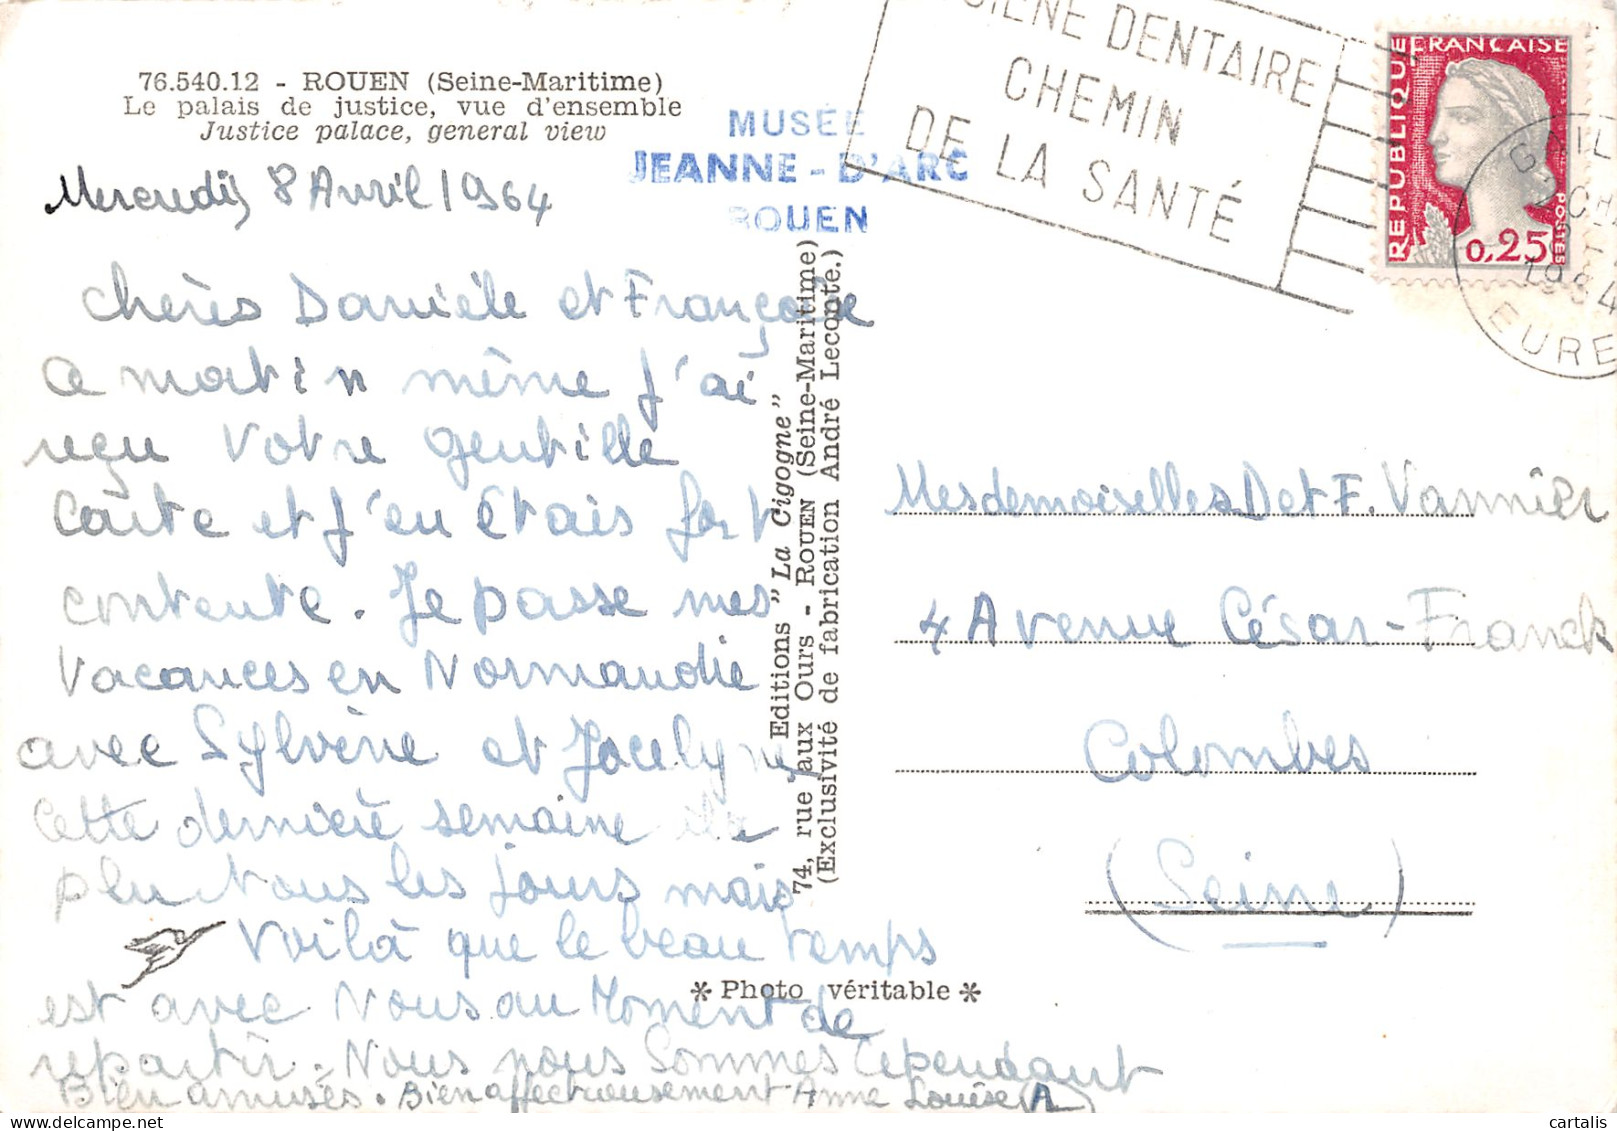 76.540.12 - ROUEN (Seine-Maritime)
Le palais de justice, vue d'ensemble
Justice palace, general view
MUSÉE
JEANNE-D'ARC
ROUEN
GIÈNE DENTAIRE
CHEMIN
DE LA SANTÉ
REPUBLIQUE FRANÇAISE
POSTES
0,25
EURE
Mercredi 8 Avril 1964
Chères Danièle et Françoise
Ce matin même j'ai
reçu votre gentille
carte et j'en étais fort
contente. Je passe mes
Vacances en Normandie
avec Sylvène et Jocelyne
Cette dernière semaine il a
plu tous les jours mais
Voilà que le beau temps
est avec Nous au Moment de
repartir. Nous nous Sommes Cependant
Bien amusés. Bien affectueusement Anne Louise (A)
Editions "La Cigogne"
74, rue aux Ours - ROUEN (Seine-Maritime)
(Exclusivité de fabrication André Leconte.)
* Photo véritable *
Mesdemoiselles D et F. Vannier
4 Avenue César-Franck
Colombes
(Seine)
cartalis